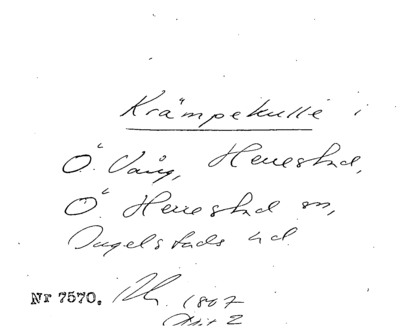 Krämpekulle i
Ö. Vång, Herrestad,
Ö. Herrestad sn,
Ingelstads hd
Nr 7570. 1807